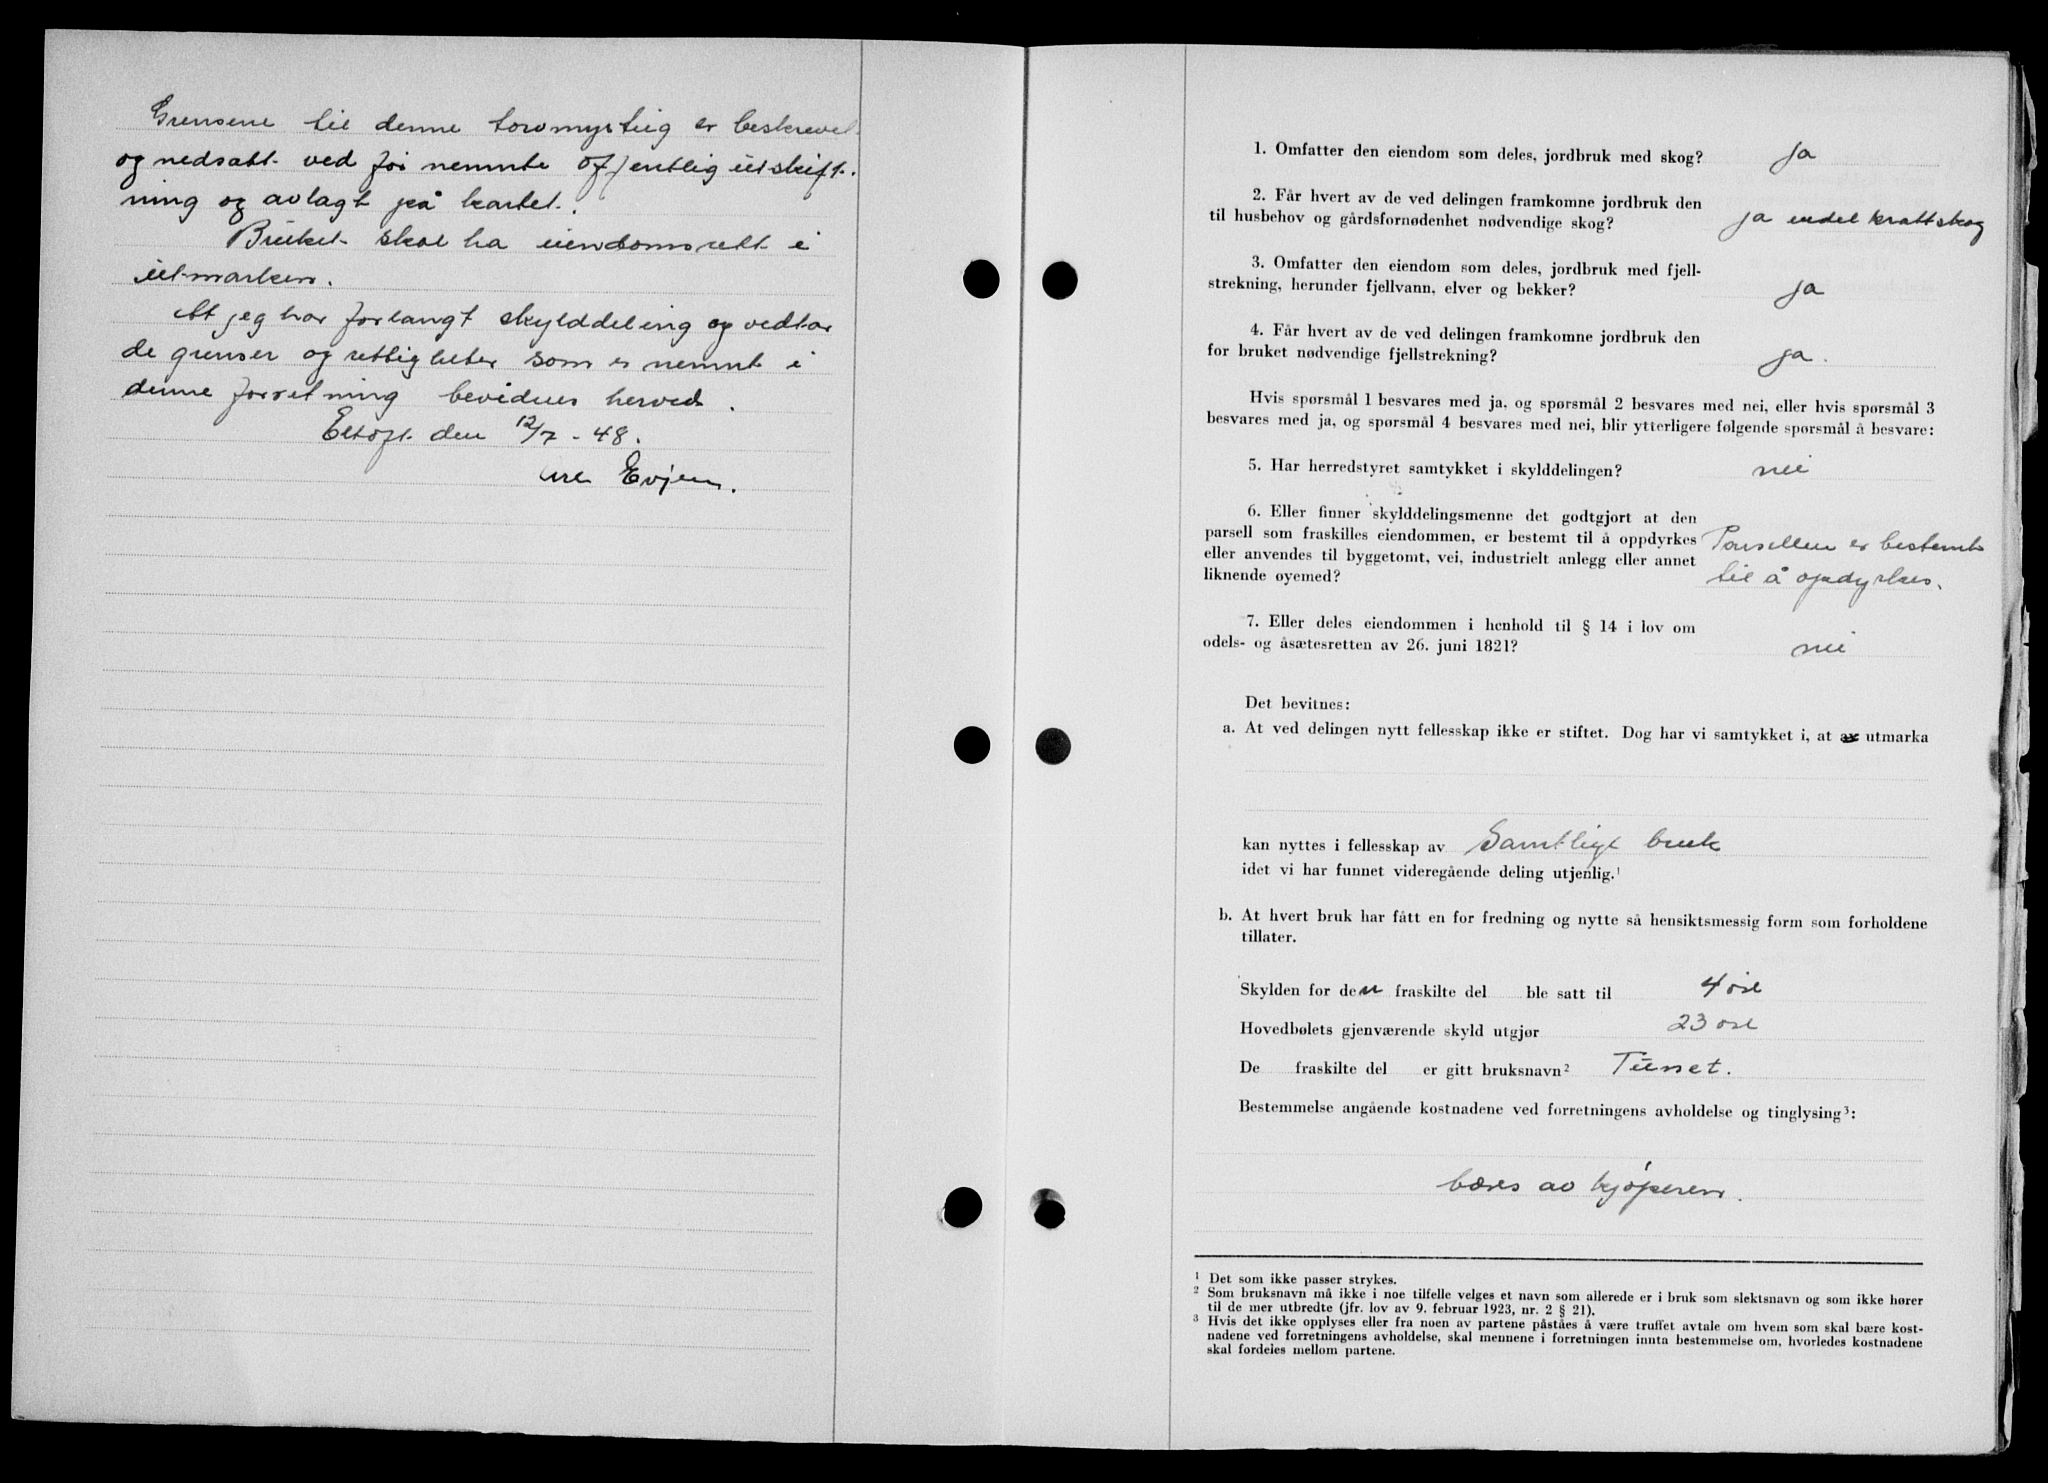 Grensene til denne torvmyrteig er beskrevet
og nedsatt ved før nemnte offentlig utskift-
ning og avlagt på kartet.
Bruket skal ha eiendomsrett i
utmarken.
At jeg har forlangt skylddeling og vedtar
de grenser og rettigheter som er nemnt i
denne forretning bevidnes herved.
Eltoft den 12/7 - 48.
Evjen.
1. Omfatter den eiendom som deles, jordbruk med skog? ja
2. Får hvert av de ved delingen framkomne jordbruk den
til husbehov og gårdsfornødenhet nødvendige skog? ja endel krattskog
3. Omfatter den eiendom som deles, jordbruk med fjell-
strekning, herunder fjellvann, elver og bekker? ja
4. Får hvert av de ved delingen framkomne jordbruk den
for bruket nødvendige fjellstrekning? ja.
Hvis spørsmål 1 besvares med ja, og spørsmål 2 besvares med nei, eller hvis spørsmål 3
besvares med ja, og spørsmål 4 besvares med nei, blir ytterligere følgende spørsmål å besvare:
5. Har herredstyret samtykket i skylddelingen? nei
6. Eller finner skylddelingsmenne det godtgjort at den
parsell som fraskilles eiendommen, er bestemt til å oppdyrkes Parsellen er bestemt
eller anvendes til byggetomt, vei, industrielt anlegg eller annet
liknende øyemed? til å opdyrkes.
7. Eller deles eiendommen i henhold til § 14 i lov om
odels- og åsætesretten av 26. juni 1821? nei
Det bevitnes:
a. At ved delingen nytt fellesskap ikke er stiftet. Dog har vi samtykket i, at av utmarka
kan nyttes i fellesskap av Samtligt bruk
idet vi har funnet videregående deling utjenlig.¹
b. At hvert bruk har fått en for fredning og nytte så hensiktsmessig form som forholdene
tillater.
Skylden for den fraskilte del ble satt til 4 øre
Hovedbølets gjenværende skyld utgjør 23 øre
De fraskilte del er gitt bruksnavn² Tunet.
Bestemmelse angående kostnadene ved forretningens avholdelse og tinglysing³:
bæres av kjøperen.
¹ Det som ikke passer strykes.
² Som bruksnavn må ikke i noe tilfelle velges et navn som allerede er i bruk som slektsnavn og som ikke hører
til de mer utbredte (jfr. lov av 9. februar 1923, nr. 2 § 21).
³ Hvis det ikke opplyses eller fra noen av partene påståes å være truffet avtale om hvem som skal bære kost-
nadene ved forretningens avholdelse, skal mennene i forretningen innta bestemmelse om, hvorledes kostnadene
skal fordeles mellom partene.